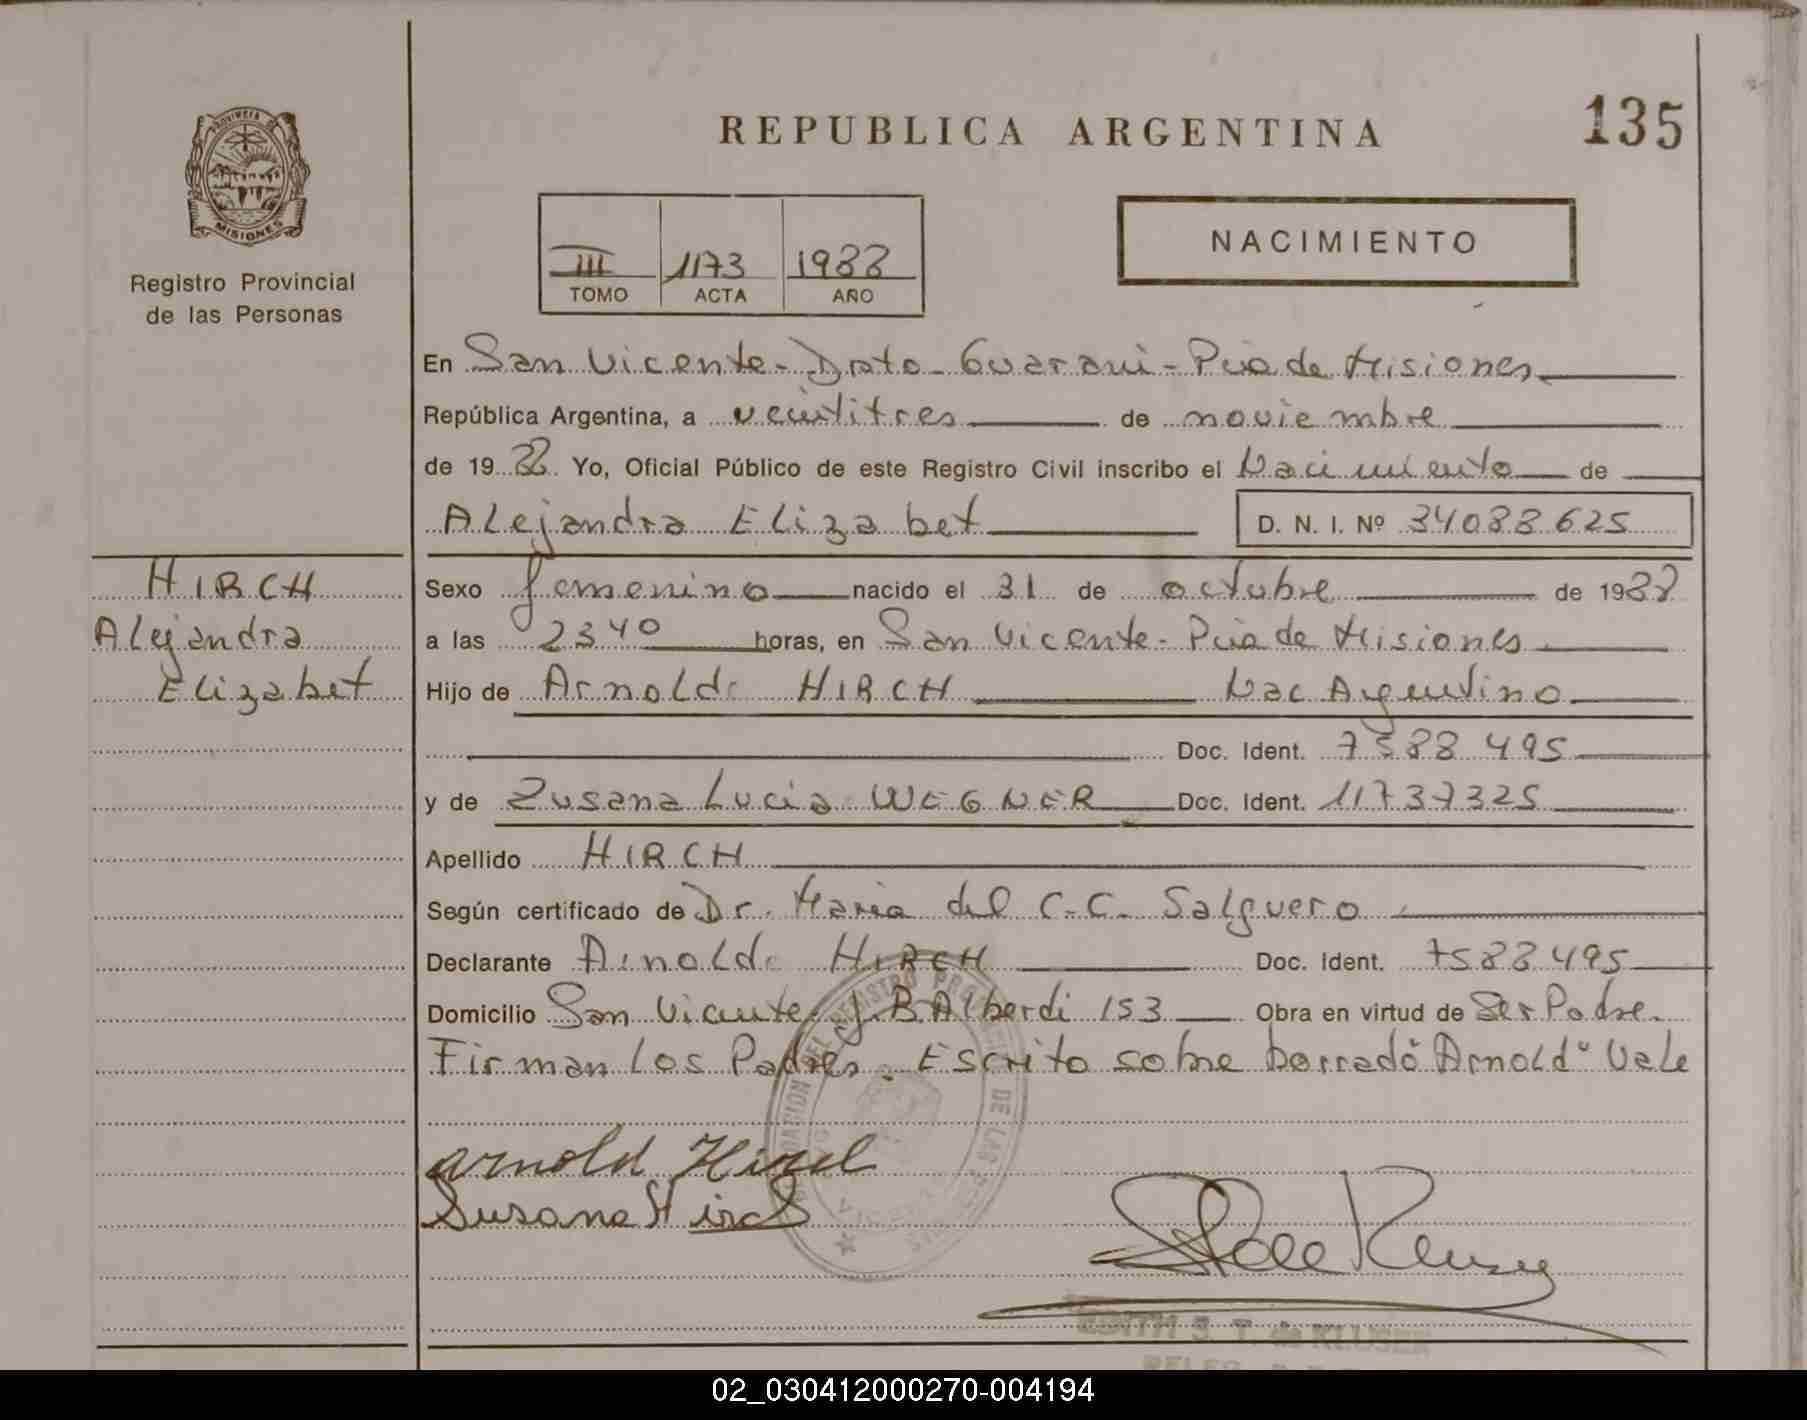 PROVINCIA DE
MISIONES
Registro Provincial
de las Personas
REPUBLICA ARGENTINA
135
III 1173 1988
TOMO ACTA AÑO
NACIMIENTO
En San Vicente - Dpto - Guarani - Pcia de Misiones
República Argentina, a veintitres de noviembre
de 19 88 Yo, Oficial Público de este Registro Civil inscribo el Nacimiento de
Alejandra Elizabet D. N. I. Nº 34088625
HIRCH
Alejandra
Elizabet
Sexo femenino nacido el 31 de octubre de 1988
a las 2340 horas, en San Vicente - Pcia de Misiones
Hijo de Arnold HIRCH Nac Argentino
Doc. Ident. 7588495
y de Zusana Lucia WEGNER Doc. Ident. 11737325
Apellido HIRCH
Según certificado de Dr. Maria del C.C. Salguero
Declarante Arnold HIRCH Doc. Ident. 7588495
Domicilio San Vicente J.B. Alberdi 153 Obra en virtud de Ser Padre.
Firman los Padres. Escrito sobre borrado "Arnold" Vale
Arnold
Susana
EDITH S. T. de KLUSER
02_030412000270-004194